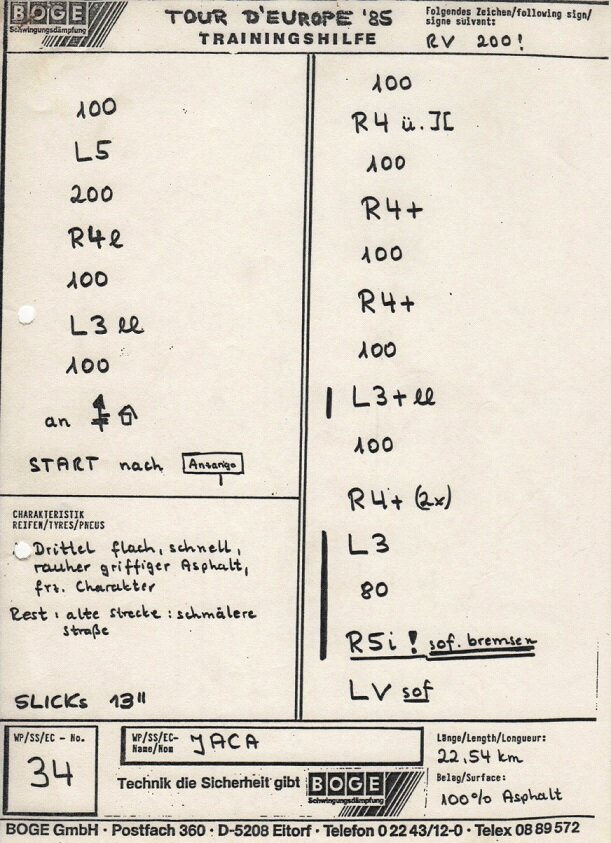 BOGE
Schwingungsdämpfung
TOUR D'EUROPE '85
TRAININGSHILFE
Folgendes Zeichen/following sign/
signe suivant:
RV 200!
100
L5
200
R4l
100
L3 ll
100
an
START nach
CHARAKTERISTIK
REIFEN/TYRES/PNEUS
Drittel flach, schnell,
rauher griffiger Asphalt,
frz. Charakter
Rest: alte Strecke: schmälere
Straße
SLICKS 13"
100
R4 ü. ][
100
R4+
100
R4+
100
L3+ ll
100
R4+ (2x)
L3
80
R5i! sof. bremsen
LV sof
WP/SS/EC - No.
34
WP/SS/EC-
Name/Nom
JACA
Technik die Sicherheit gibt
BOGE
Schwingungsdämpfung
Länge/Length/Longueur:
22,54 km
Belag/Surface:
100% Asphalt
BOGE GmbH · Postfach 360 · D-5208 Eitorf · Telefon 0 22 43/12-0 · Telex 08 89 572